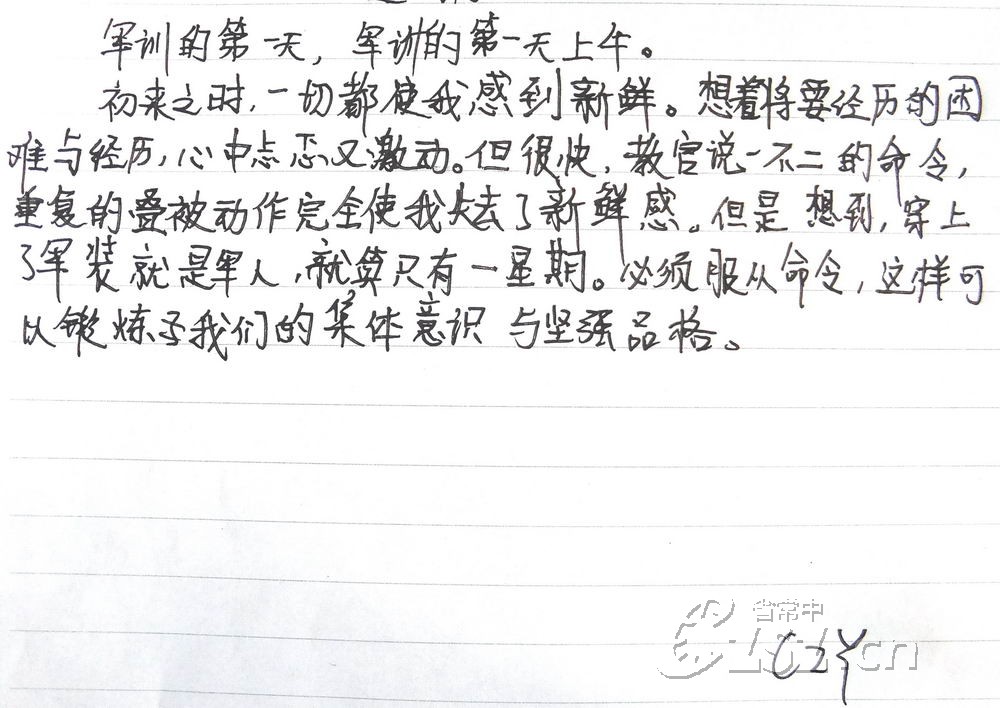 军训的第一天，军训的第一天上午。
初来之时，一切都使我感到新鲜。想着将要经历的困
难与经历，心中忐忑又激动。但很快，教官说一不二的命令，
重复的叠被动作完全使我失去了新鲜感。但是想到，穿上
了军装就是军人，就算只有一星期。必须服从命令，这样可
以锻炼了我们的集体意识与坚强品格。
省常中
CZY